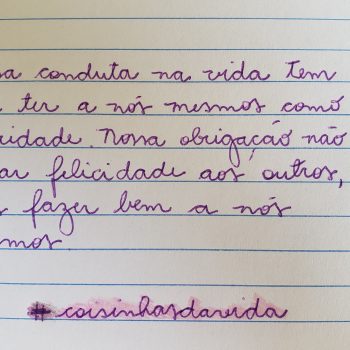 sa conduta na vida tem
ter a nós mesmos como
ridade. Nossa obrigação não
ar felicidade aos outros,
s fazer bem a nós
mos.
#coisinhasdavida